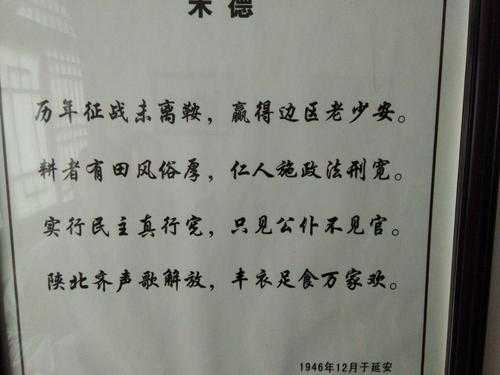 朱德
历年征战未离鞍，赢得边区老少安。
耕者有田风俗厚，仁人施政法刑宽。
实行民主真行宪，只见公仆不见官。
陕北齐声歌解放，丰衣足食万家欢。
1946年12月于延安